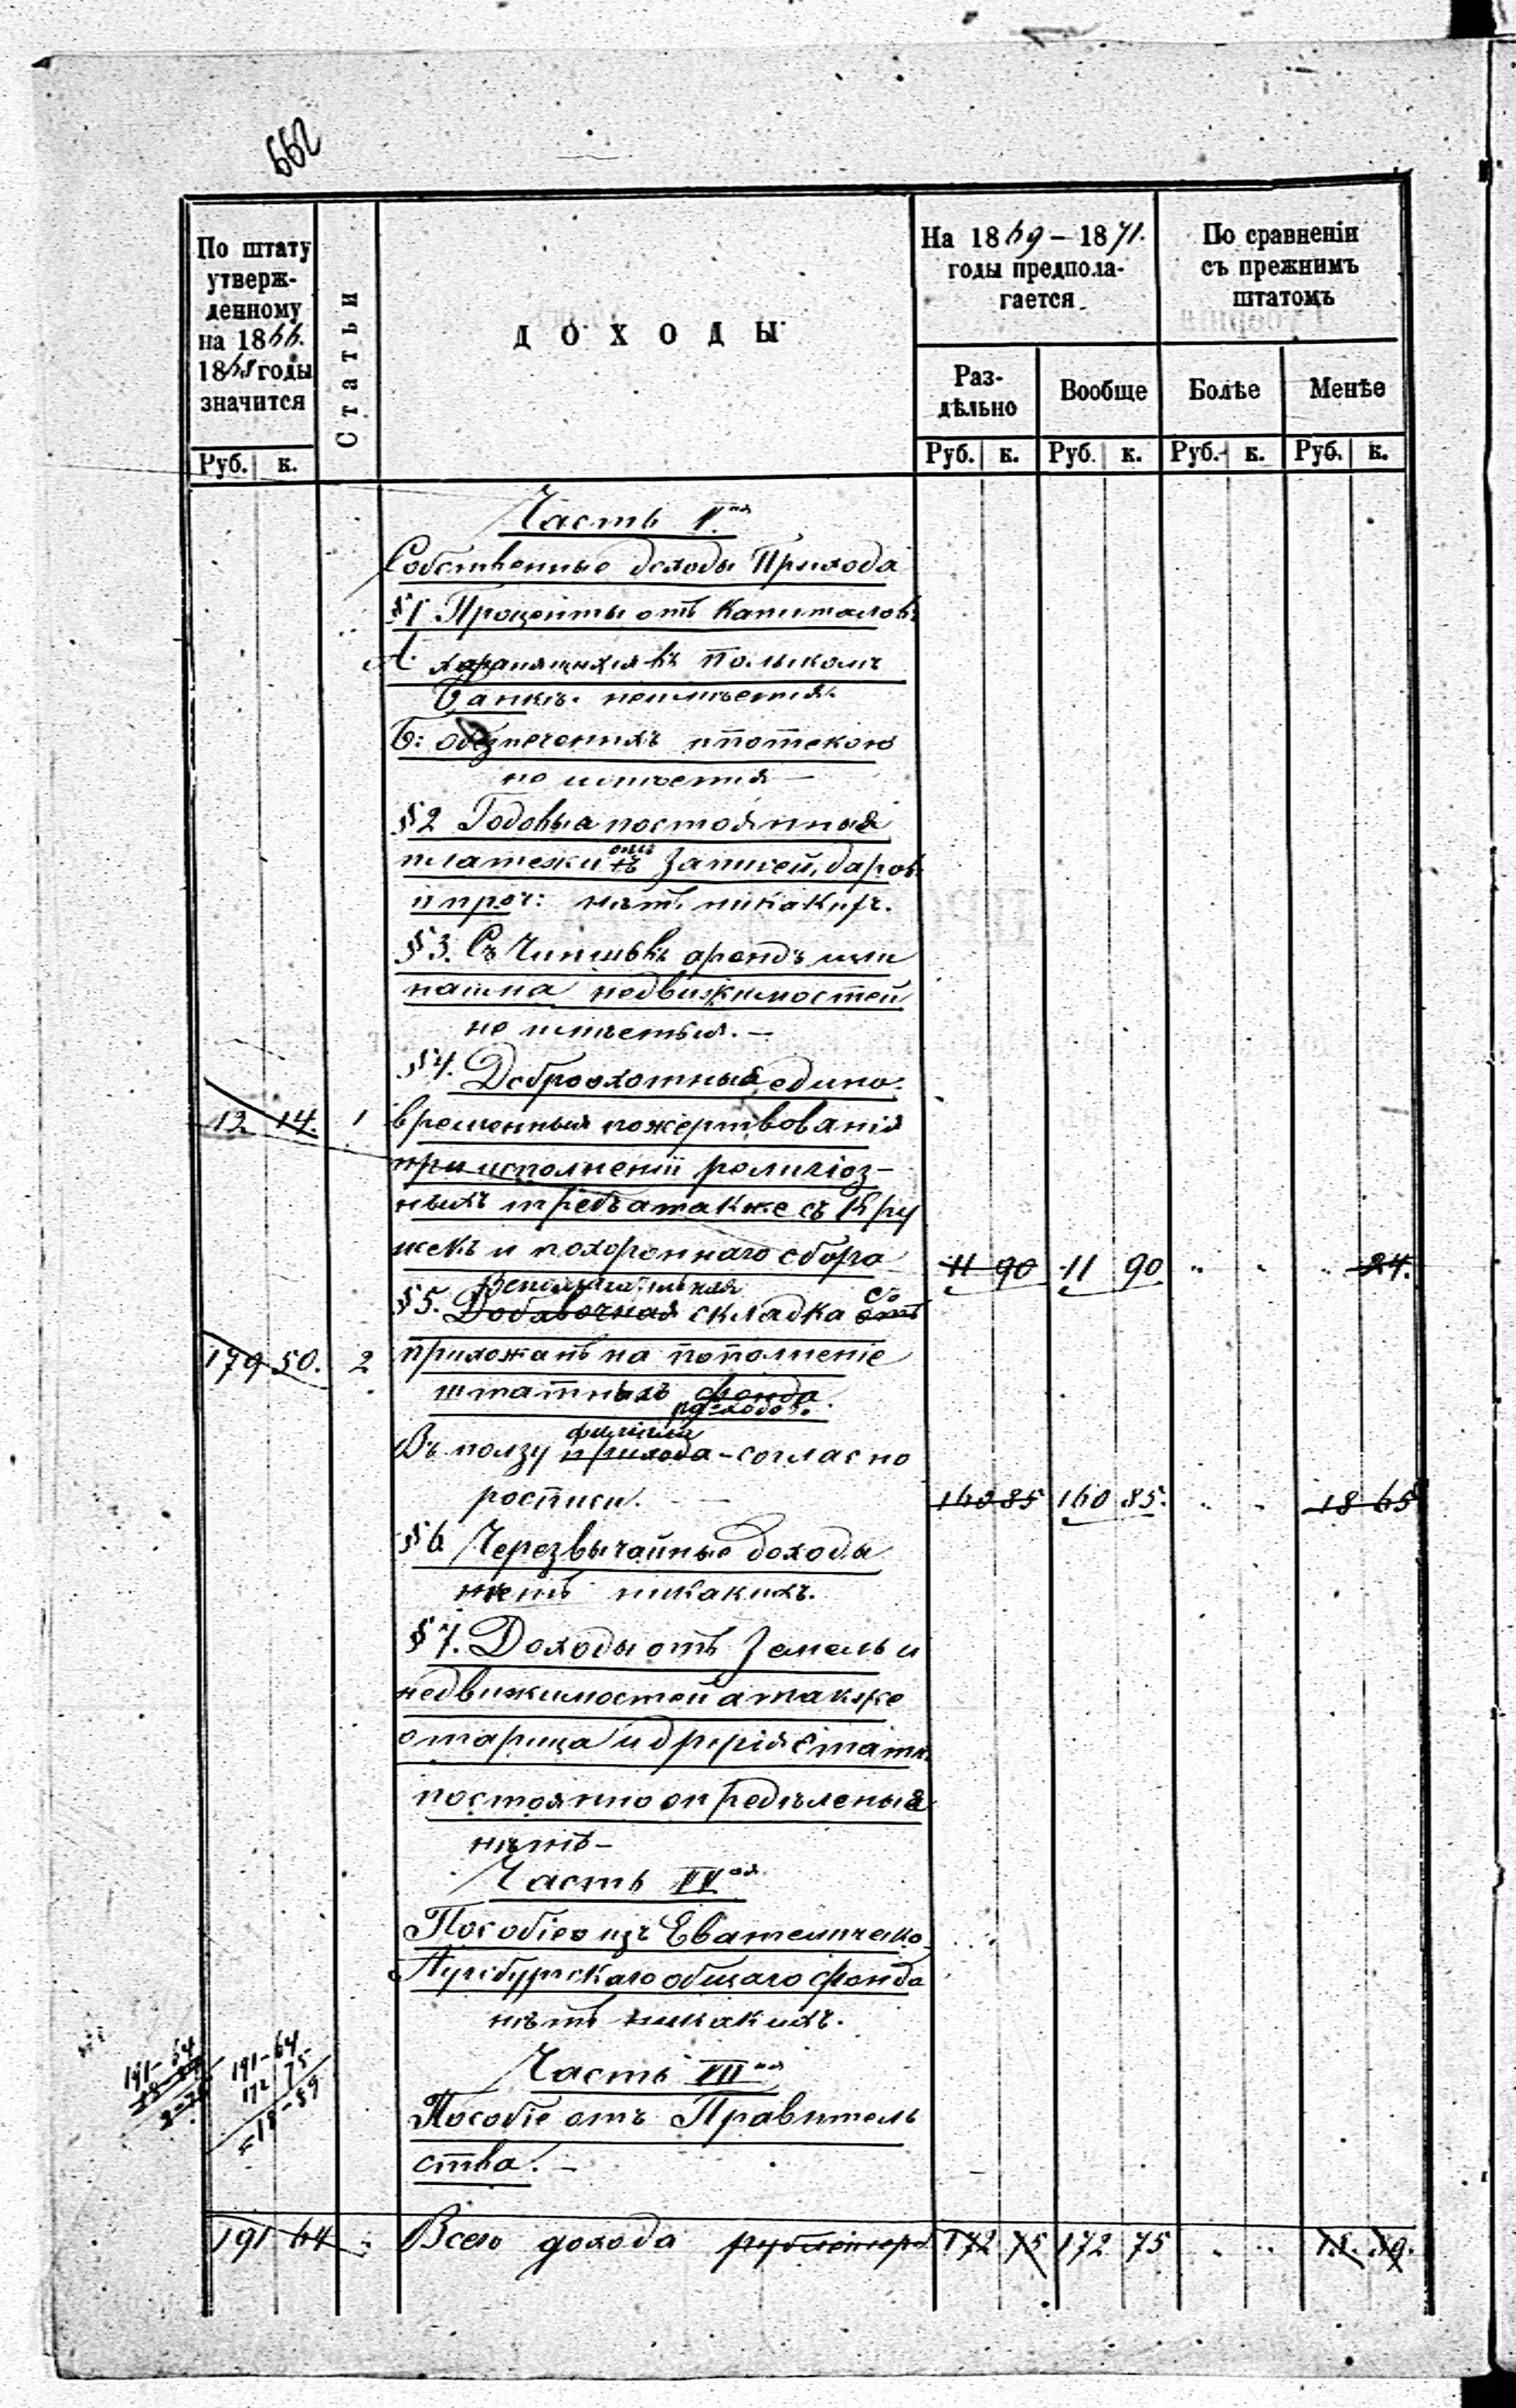 662
По штату
утверж-
денному
на 1866.
1868 годы
значится
Статьи
ДОХОДЫ
На 1869 – 1871.
годы предпола-
гается
По сравненіи
съ прежнимъ
штатомъ
Раз-
дѣльно
Вообще
Болѣе
Менѣе
Руб. к.
Руб. к. Руб. к. Руб. к. Руб. к.
Часть I.ая
Собственные доходы Прихода
§1 Проценты отъ Капиталовъ
А. хоранящихся въ Польскомъ
Банкѣ. неимѣется.
Б: обезпеченихъ ипотекою
не имѣется —
§2 Годовыя постоянныя
платежи отъ Записей, даров
и проч: нѣтъ никакихъ.
§3. Съ Чиншовъ арендъ или
найма недвижимостей
не имѣется. —
§4. Доброохотныя едино.
13 14. 1 временныя пожертвованія
при исполненіи религіоз-
ныхъ требъ а также съ Кру
жекъ и похороннаго сбора 11 90 11 90 " " " 24.
Вспомагательная съ
§5. Добавочная складка отъ
179 50. 2 прихожанъ на пополненіе
штатныхъ фонда.
расходовъ.
филіи
Въ ползу прихода – согласно
росписи. 160 85 160 85. " " 18 65
§6 Черезвычайные доходы
нѣтъ никакихъ.
§7. Доходы отъ Земель и
недвижимостей а также
постоянно опредѣленыя
нѣтъ –
Часть II ая
Пособіе изъ Евангелическо
Аугсбургскаго общаго фонда
нѣтъ никакихъ.
191–64
191–64
172 75
18–89
Часть III ая
Пособіе отъ Правитель
ства. —
191 64 " Всего дохода 172 75 172 75 " " 18. 89.